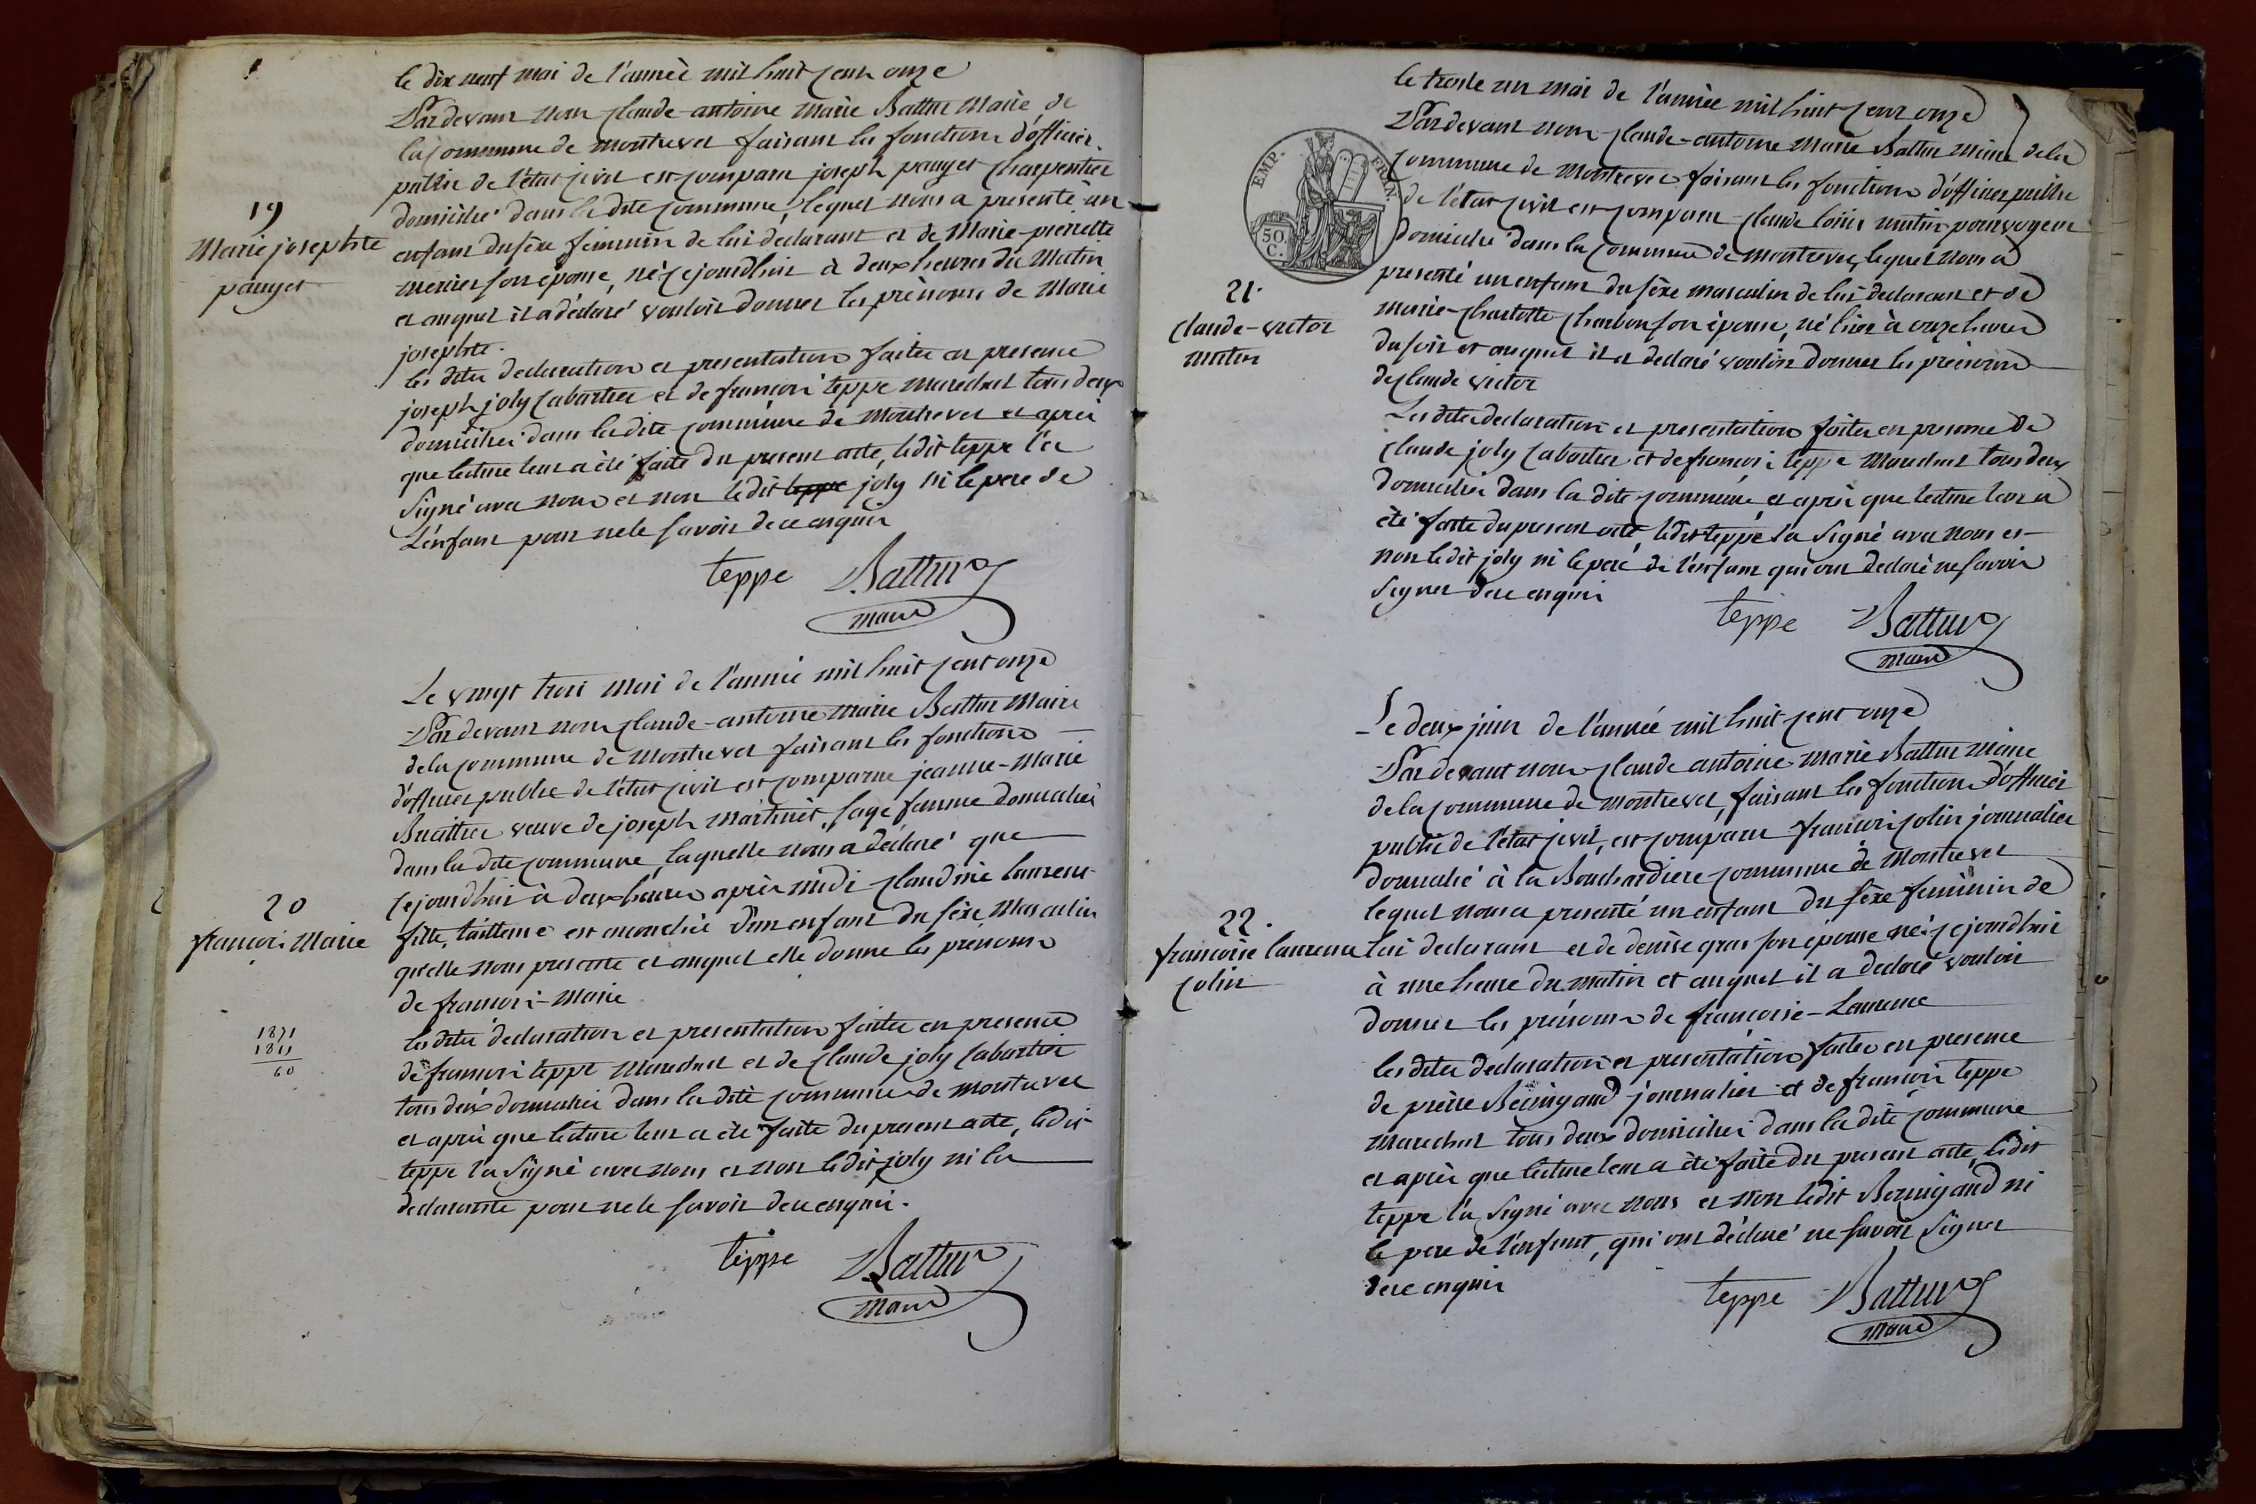 le dix neuf mai de l'année mil huit cent onze
Pardevant nous claude-antoine marie Battur Maire de
la commune de montrevel faisant les fonctions d'officier
public de l'état civil est comparu joseph pauget charpentier
domicilié dans la dite commune, lequel nous a presenté un
19
Marie josephte
pauget
enfant du sèxe féminin de lui declarant et de Marie-pierrette
mercier son épouse, né cejourdhui à deux heures du Matin
et auquel il a déclaré vouloir donner les prénoms de Marie
josephte.
les dites declaration et presentation faites en presence
joseph joly cabartier et de francois teppe marechal tous deux
domiciliés dans la dite commune de Montrevel et après
que lecture leur a été faite du present acte, ledit teppe l'a
signé avec nous et non ledit teppe joly ni le pere de
L'enfant pour ne le savoir de ce enquis
teppe Battur
maire
Le vingt trois mai de l'année mil huit cent onze
Pardevant nous claude-antoine marie Battur Maire
de la commune de Montrevel faisant les fonctions
d'officier public de l'état civil est comparue jeanne-Marie
veuve de joseph Martinet, sage femme domiciliée
dans la dite commune, laquelle nous a déclaré que
cejourdhui à deux heures après midi claudine laurent
20
francois Marie
fille, tailleuse est accouchée d'un enfant du sèxe Masculin
qu'elle nous presente et auquel elle donne les prénoms
de francois-Marie
1871
1811
60
les dites declaration et presentation faites en presence
de francois teppe Marechal et de claude joly cabartier
tous deux domiciliés dans la dite commune de montrevel
et après que lecture leur a été faite du present acte, ledit
teppe l'a signé avec nous et non ledit joly ni la
declarante pour ne le savoir de ce enquis.
teppe Battur
Maire
le trente un mai de l'année mil huit cent onze
Pardevant nous claude-antoine Marie Battur Maire de la
EMP. FRIN.
50 C.
commune de Montrevel faisant les fonctions d'officier public
de l'état civil est comparu claude louis mutin pourvoyeur
domicilié dans la commune de Montrevel, lequel nous a
21.
claude-victor
mutin
presenté un enfant du sèxe masculin de lui declarant et de
marie-charlotte charbon son épouse, né hier à onze heures
du soir et auquel il a declaré vouloir donner les prénoms
de claude victor
Les dites declaration et presentation faites en presence de
claude joly cabartier et de francois teppe Marechal tous deux
domiciliés dans la dite commune, et après que lecture leur a
été faite du present acte ledit teppe l'a signé avec nous et
non ledit joly ni le pere de l'enfant qui ont declaré ne savoir
signer de ce enquis
teppe Battur
maire
Le deux juin de l'année mil huit cent onze
Pardevant nous claude antoine Marie Battur Maire
de la commune de Montrevel, faisant les fonctions d'officier
public de l'état civil, est comparu francois colin journalier
domicilié à la Bouchardiere commune de Montrevel
lequel nous a presenté un enfant du sèxe feminin de
22.
francoise laurence
colin
lui declarant et de denise gras son épouse né cejourdhui
à une heure du matin et auquel il a declaré vouloir
donner les prénoms de francoise-Laurence
les dites declaration et presentation faites en presence
de pierre journalier et de francois teppe
marechal tous deux domiciliés dans la dite commune
et après que lecture leur a été faite du present acte, ledit
teppe l'a signé avec nous et non ledit ni
le pere de l'enfant, qui ont déclaré ne savoir signer
de ce enquis
teppe Battur
maire